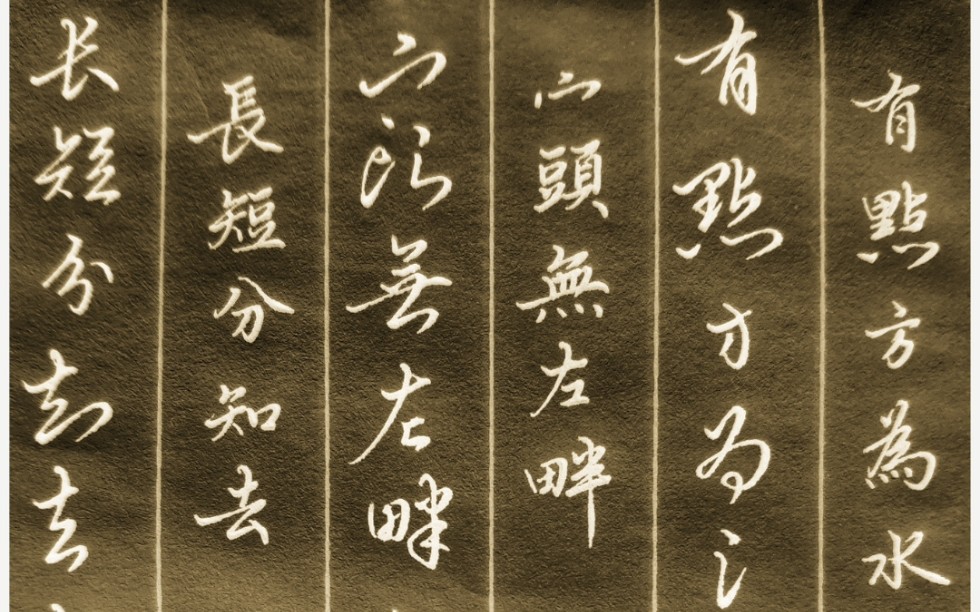 有點方為水
有點方為氵
宀頭無左畔
宀頭無左畔
長短分知去
长短分知去